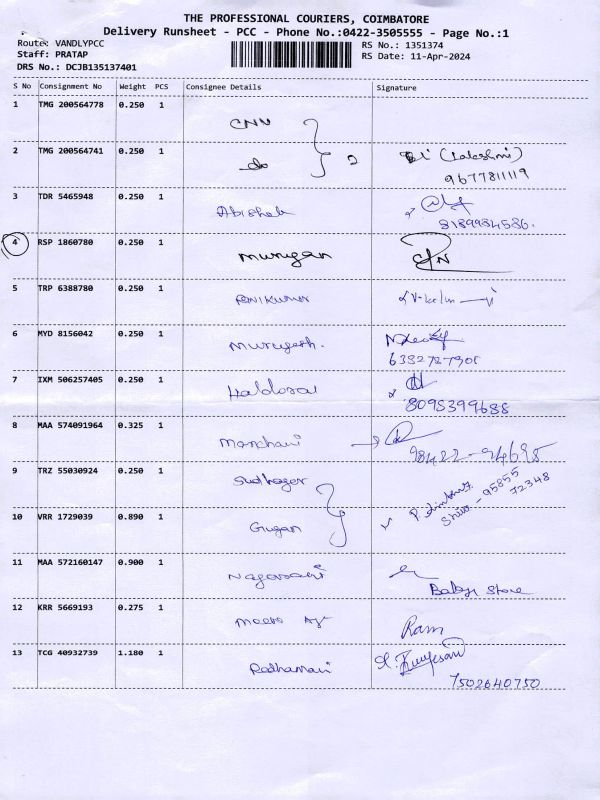 THE PROFESSIONAL COURIERS, COIMBATORE
Delivery Runsheet - PCC - Phone No.:0422-3505555 - Page No.:1
Route: VANDLYPCC
RS No.: 1351374
Staff: PRATAP
RS Date: 11-Apr-2024
DRS No.: DCJB135137401
S No Consignment No Weight PCS Consignee Details Signature
1 TMG 200564778 0.250 1 CNN
2 TMG 200564741 0.250 1 do 2 (Lakshmi)
9677811119
3 TDR 5465948 0.250 1 Abishek
8189984586.
4 RSP 1860780 0.250 1 Murugan
5 TRP 6388780 0.250 1
6 MYD 8156042 0.250 1 Murugesh.
7 IXM 506257405 0.250 1
8095399688
8 MAA 574091964 0.325 1
98422-94695
9 TRZ 55030924 0.250 1 Sudhager
95855
72348
10 VRR 1729039 0.890 1 Gugan
11 MAA 572160147 0.900 1
Baby Store
12 KRR 5669193 0.275 1 Ram
13 TCG 40932739 1.180 1
7502640750